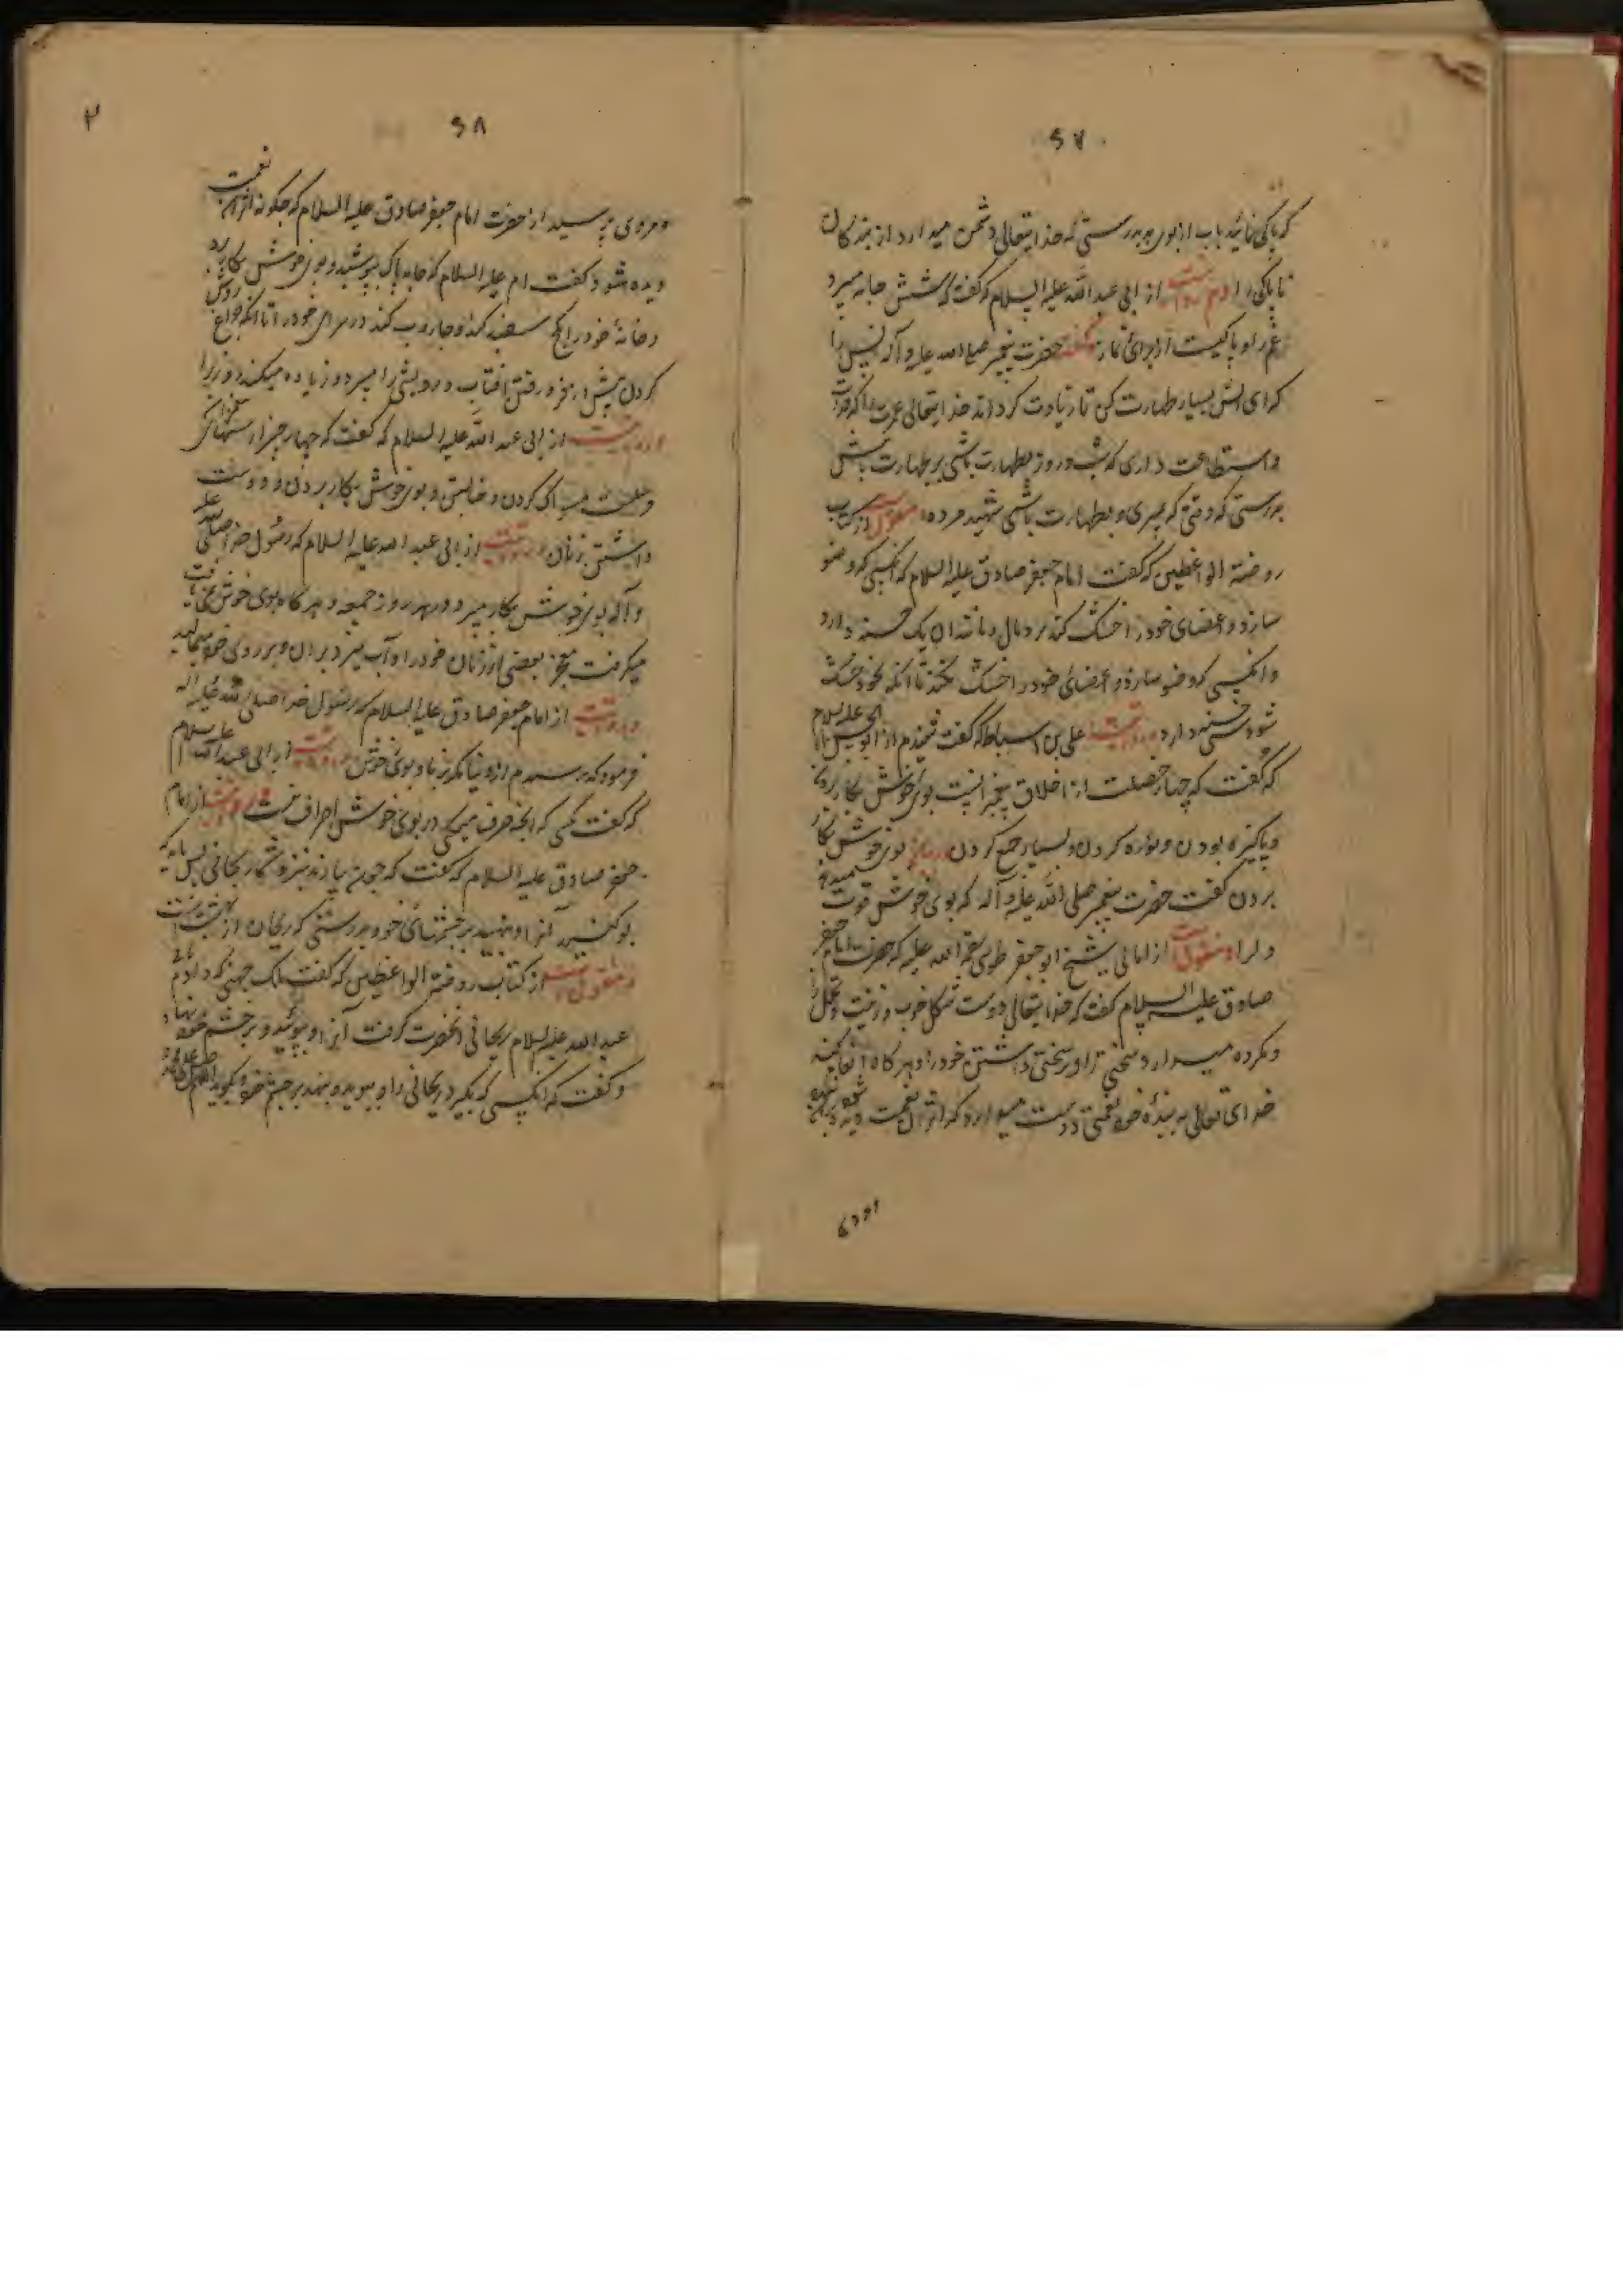 ۶۷
که پاکی نمائید باب از بوی بد بدرستی که خدایتعالی دشمن میدارد از بندگان
ناپاکی را از ابی عبد الله علیه السلام که گفت که شستن جامه میبرد
غم را و پاکیست از برای نماز حضرت پیغمبر صلی الله علیه و آله انس را
که ای انس بسیار طهارت کن تا زیادت گرداند خدایتعالی عمرت را اگر
و استطاعت داری که شب و روز بطهارت باشی بر طهارت باش
بدرستی که وقتی که بمیری و بطهارت باشی شهید مرده منقول از کتاب
روضة الواعظین که گفت امام جعفر صادق علیه السلام که آنکسی که وضو
سازد و اعضای خود را خشک کند برومال و مانند آن یک حسنه دارد
و آنکسی که وضو سازد و اعضای خود را خشک نکند تا آنکه بخود خشک
شود سی حسنه دارد علی بن اسباط که گفت شنیدم از ابو الحسن علیه السلام
که گفت که چهار خصلت از اخلاق پیغمبرانست بوی خوش بکار بردن
و پاکیزه بودن و نوره کردن و بسیار جمع کردن بوی خوش بکار
بردن گفت حضرت پیغمبر صلی الله علیه و آله که بوی خوش قوت میدهد
دل را و منقول از امالی شیخ ابو جعفر طوسی رحمة الله علیه که حضرت امام جعفر
صادق علیه السلام گفت که خدایتعالی دوست شکل خوب و زینت و تجمل را
و مکروه میدارد سختی را و سختی داشتن خود را و هر گاه انعام کند
خدای تعالی به بنده خود نعمتی دوست میدارد که اثر آن نعمت دیده شود
مردی
۶۸
مردی پرسید از حضرت امام جعفر صادق علیه السلام که چگونه اثر آن نعمت
دیده شود گفت امام علیه السلام که جامه پاک بپوشد و بوی خوش بکار برد
و خانه خود را گچ سفید کند و جاروب کند در سرای خود را تا آنکه چراغ روشن
کردن پیش از فرو رفتن آفتاب درویشی را میبرد و زیاده میکند روزی را
از ابی عبد الله علیه السلام که گفت که چهار چیز از سنتهای
مسواکی کردن و حنا بستن و بوی خوش بکار بردن و دوست
داشتن زنان از ابی عبد الله علیه السلام که رسول خدا صلی الله علیه
و آله بوی خوش بکار میبرد در هر روز جمعه و هر گاه بوی خوش نمی یافت
میگرفت معجز بعضی از زنان خود را و آب میزد بر آن و بر روی خود میمالید
و روایتست از امام جعفر صادق علیه السلام که رسول خدا صلی الله علیه و آله
فرمود که نرسیدم از دنیا مگر بزنان و بوی خوش از ابی عبد الله علیه السلام
که گفت کسی که آنچه صرف میکنی در بوی خوش اسراف نیست و روایتست از امام
جعفر صادق علیه السلام که گفت که چون بیارند نزد شما ریحانی پس باید که
بو کنید آنرا و بنهید بر چشمهای خود بدرستی که ریحان از بهشت است
و منقولست از کتاب روضة الواعظین که گفت مالک جهنی که دادم بابی
عبد الله علیه السلام ریحانی آنحضرت گرفت آنرا و بوئید و بر چشم خود نهاد
و گفت که آنکسی که بگیرد ریحانی را و ببوید و بنهد بر چشم خود و بگوید اللهم صل علی محمد و